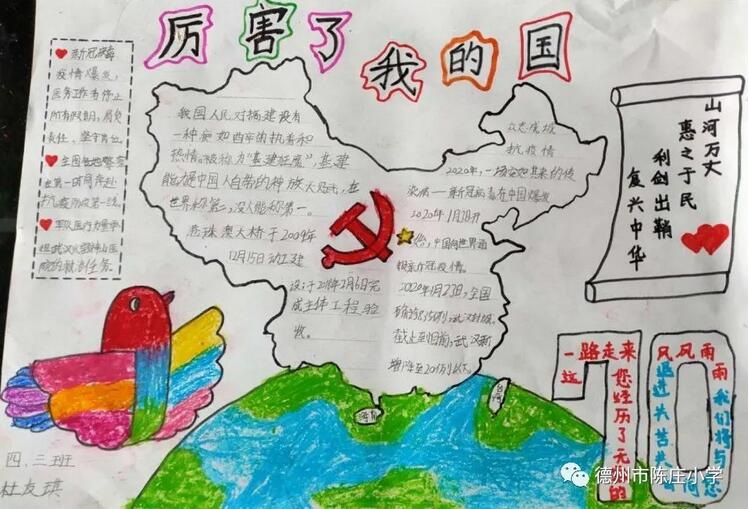 厉害了我的国
新冠病毒
疫情爆发,
医务工作者停止
所有假期,肩负
责任,坚守岗位。
全国各地警察
在第一时间奔赴
抗疫防疫第一线。
军队医疗力量承
担武汉火神山医
院的救治任务。
我国人民对搞建设有
一种宛如西部牛仔执着和
热情。被称为"基建狂魔",基建
能力是中国人自带的种族天赋,在
世界称第二,没人能称第一。
港珠澳大桥于2009年
12月15动工建
设于2018年2月6日完
成主体工程验
收。
众志成城
抗疫情
2020年,一场突如其来的传
染病——新冠病毒在中国爆发
2020年1月18开
始,中国向世界通
报新冠疫情。
2020年1月23日,全国
截止到目前,武汉新
山河万丈
惠之于民
利剑出鞘
复兴中华
一路走来
这
您经历了无数的
风风雨
雨我们将与您
同
海南
台湾
四、三班
杜友琪
德州市陈庄小学